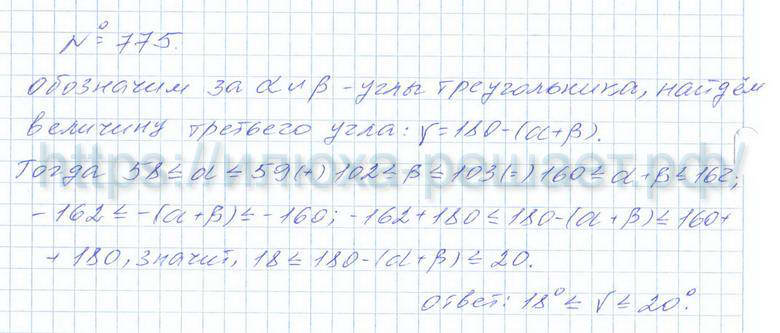 № 775.
обозначим за α и β - углы треугольника, найдём
величину третьего угла: γ=180-(α+β).
Тогда 58≤α≤59(+)102≤β≤103(=)160≤α+β≤162;
-162≤-(α+β)≤-160; -162+180≤180-(α+β)≤160+
+180, значит, 18≤180-(α+β)≤20.
ответ: 18°≤γ≤20°.